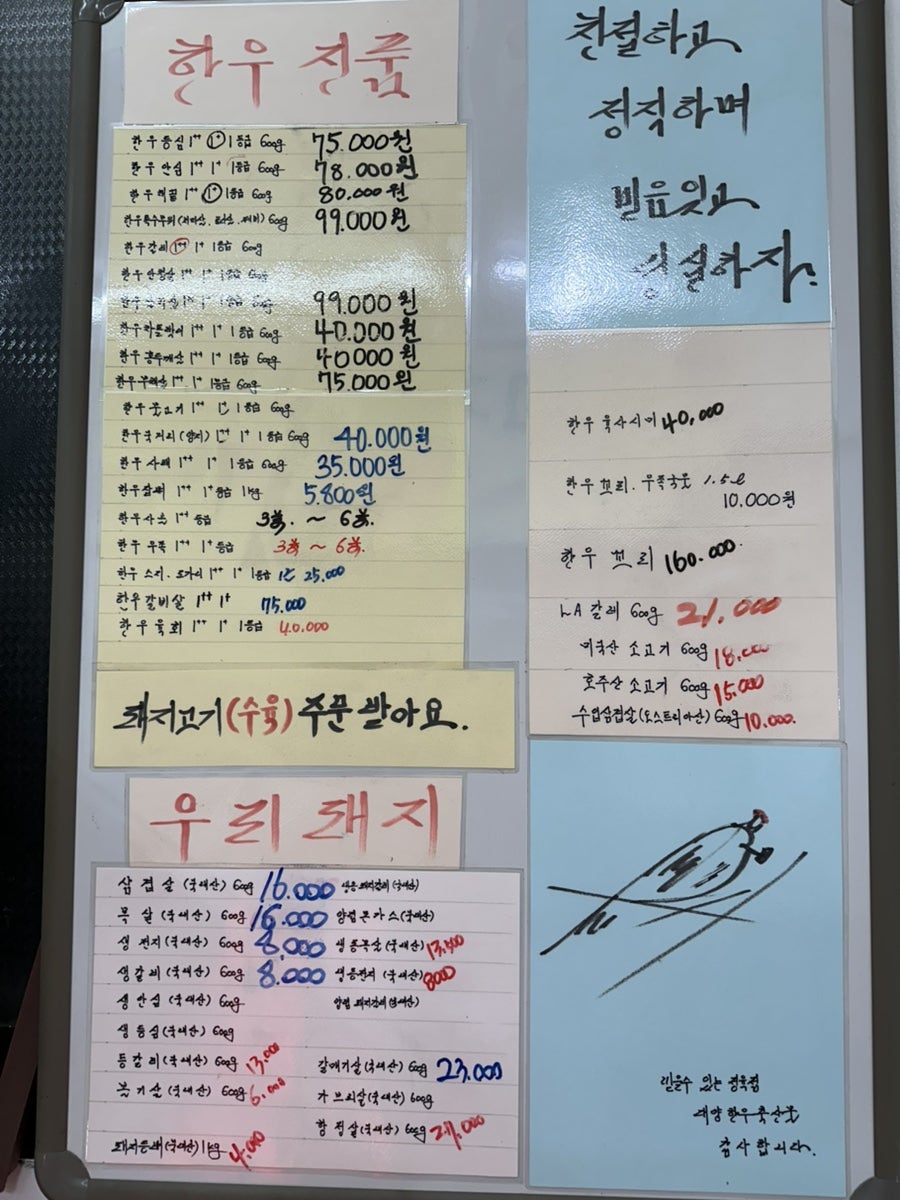 한우 전품
한우등심 1++ 1+ 1등급 600g 75.000원
한우안심 1++ 1+ 1등급 600g 78.000원
한우채끝 1++ 1+ 1등급 600g 80.000원
한우특수부위 600g 99.000원
한우갈비 1++ 1+ 1등급 600g
한우안창살 1++ 1+ 1등급 600g
1++ 1+ 1등급 600g 99.000원
1++ 1+ 1등급 600g 40.000원
한우홍두깨살 1++ 1+ 1등급 600g 40000원
한우부채살 1++ 1+ 1등급 600g 75.000원
한우불고기 1++ 1+ 1등급 600g
한우국거리(양지) 1++ 1+ 1등급 600g 40.000원
한우사태 1++ 1+ 1등급 600g 35.000원
한우잡뼈 1++ 1+등급 1kg 5.800원
한우사골 1++ 등급 3萬. ~ 6萬.
한우 우족 1++ 1+등급 3萬 ~ 6萬.
한우 스지. 도가니 1++ 1+ 1등급 25.000
한우갈비살 1++ 1+ 75.000
한우육회 1++ 1+ 1등급 40.000
돼지고기(수육) 주문 받아요.
우리돼지
삼겹살(국내산) 600g 16.000 생등돼지갈비(국내산)
목살(국내산) 600g 16.000 양념돈가스(국내산)
생전지(국내산) 600g 8.000 생등목살(국내산)
생갈비(국내산) 600g 8.000 생등전지(국내산) 8000
생안심(국내산) 600g 양념돼지갈비(국내산)
생등심(국내산) 600g
등갈비(국내산) 600g 13.000 갈매기살(국내산) 600g 23.000
볶기살(국내산) 600g 6.000 가브리살(국내산) 600g
항정살(국내산) 600g 21.000
돼지등뼈(국내산) 1kg 4.000
친절하고
정직하며
믿음있고
성실하자.
한우육사시미 40,000
한우꼬리. 우족곰국 1.5ℓ
10.000원
한우 꼬리 160.000
LA갈비 600g 21.000
미국산 소고기 600g 18.000
호주산 소고기 600g 15.000
수입삼겹살(오스트리아산) 600g 10.000.
믿을수 있는 정육점
태양한우축산물
감사합니다.